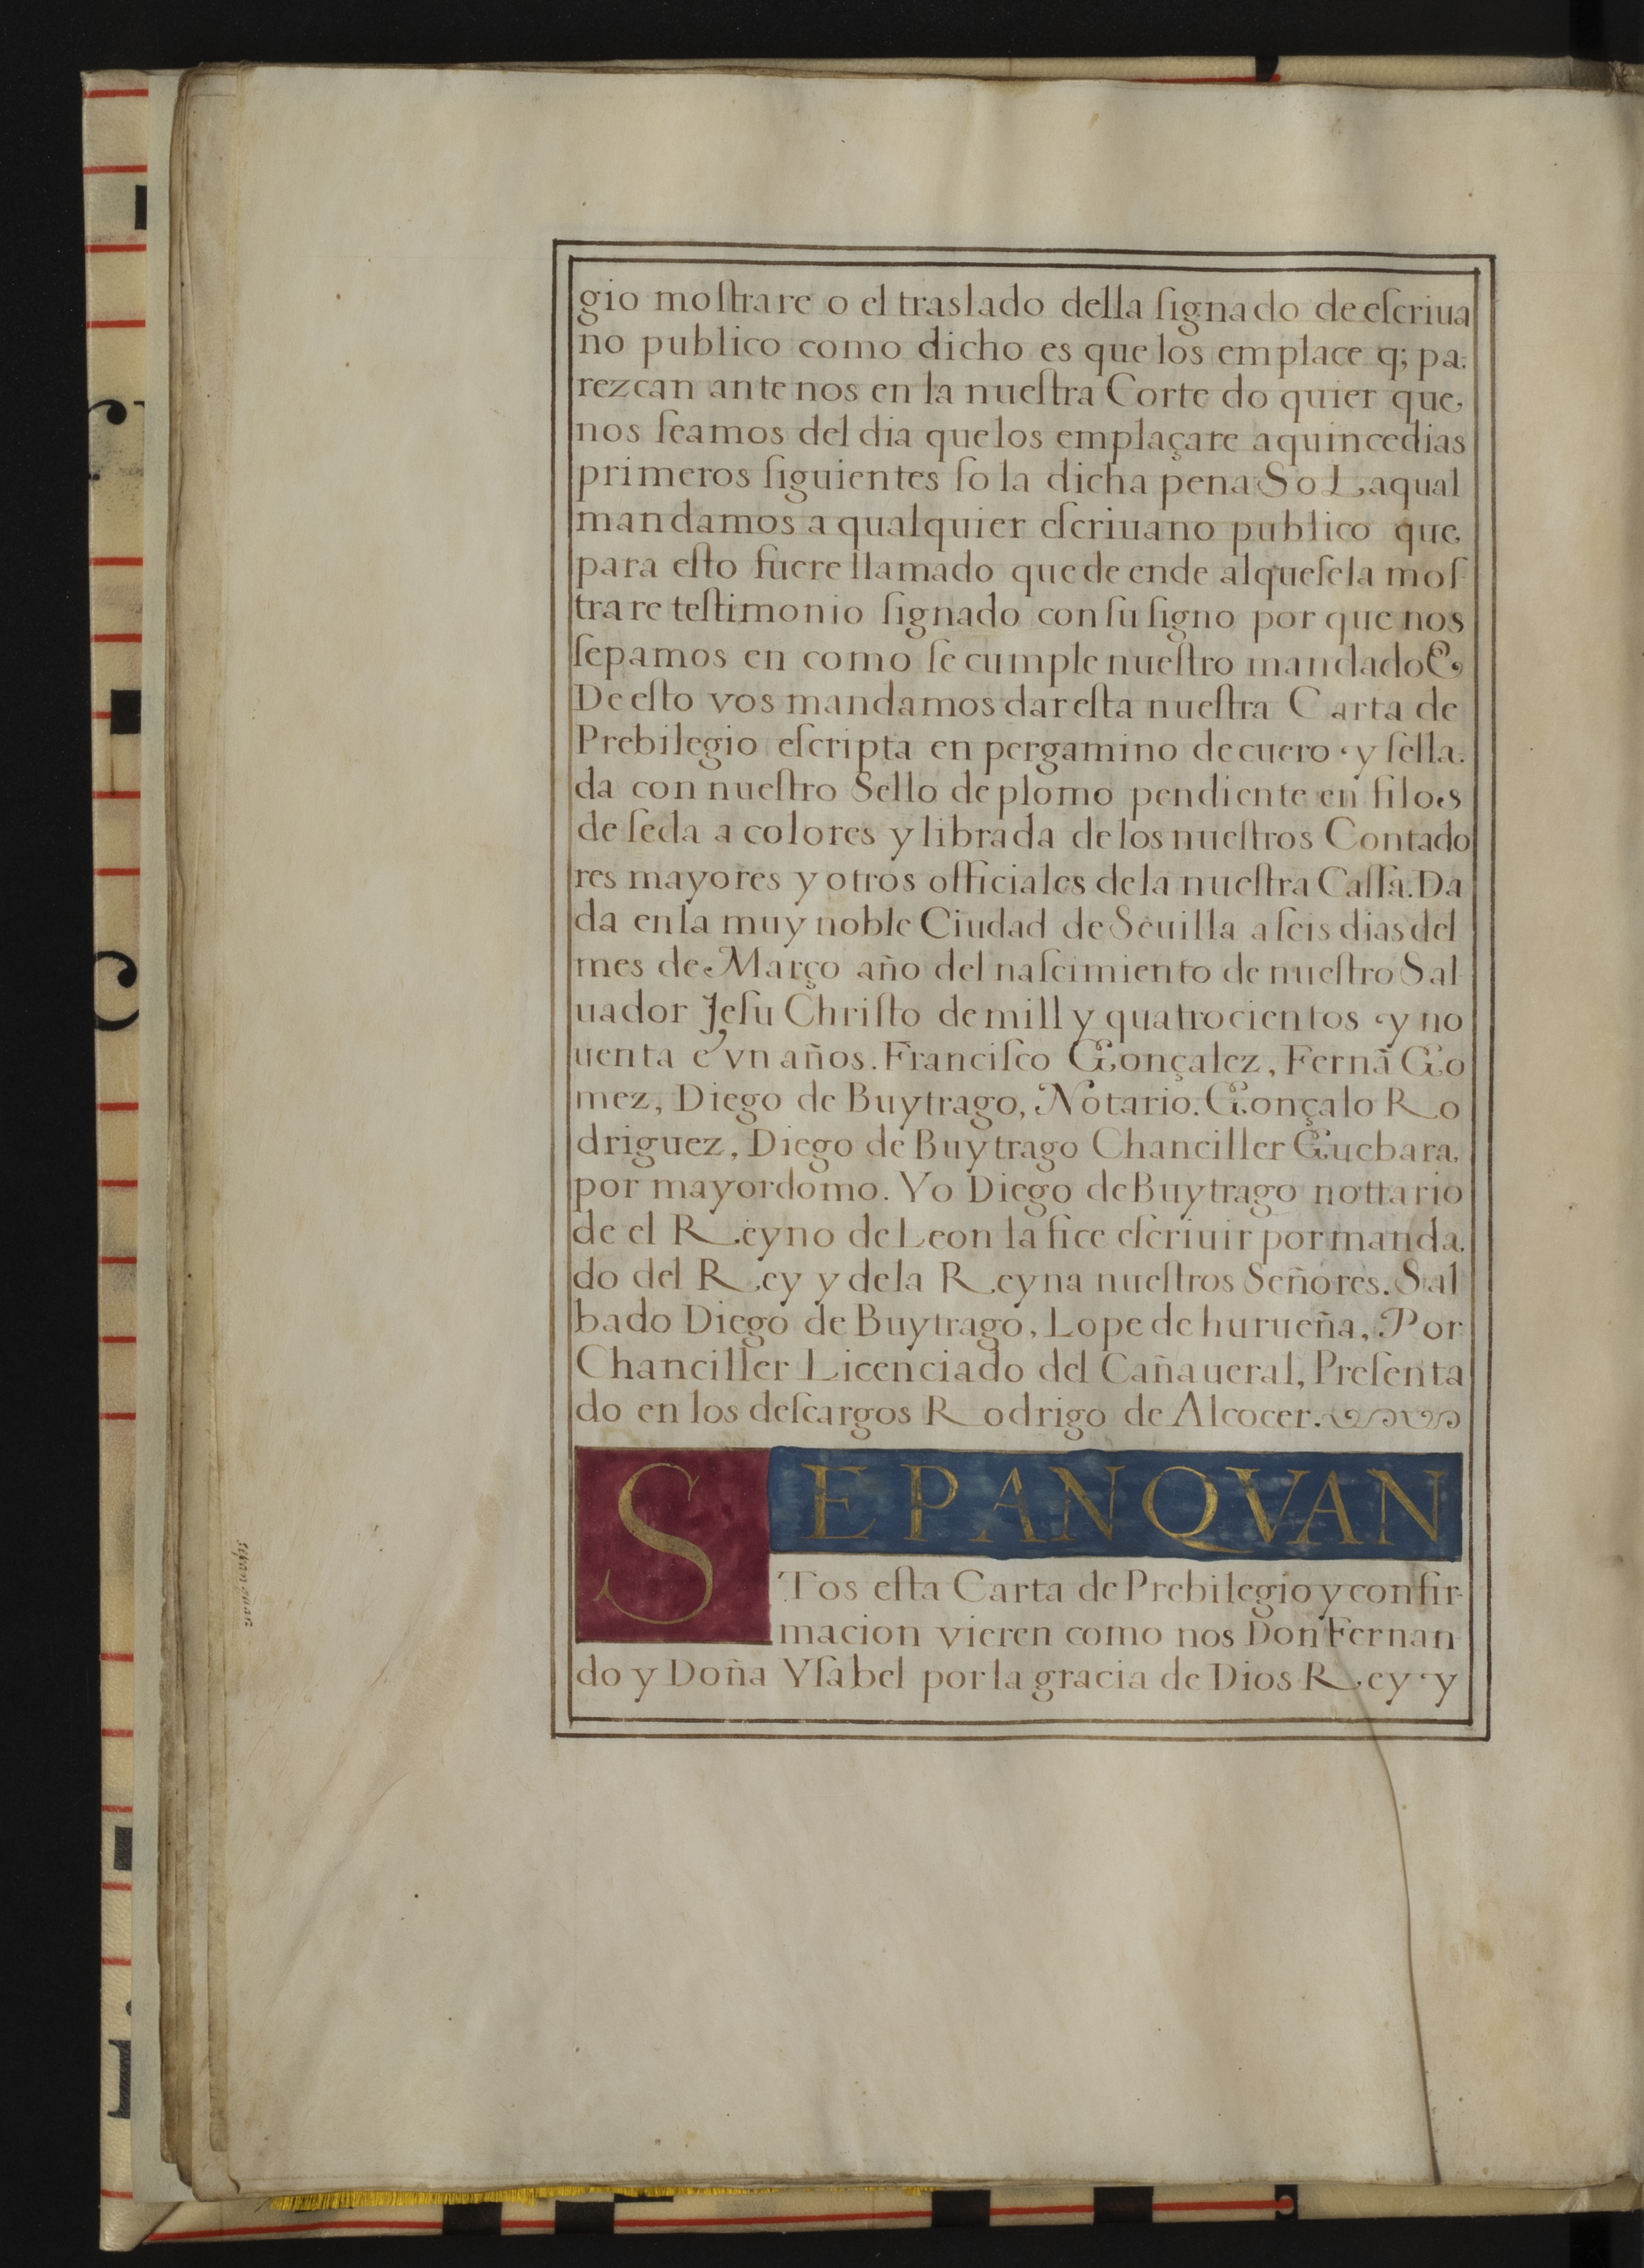 gio moſtrare o el traslado della ſignado de eſcriua
no publico como dicho es que los emplace q; pa-
rezcan ante nos en la nueſtra Corte do quier que
nos ſeamos del dia que los emplaçare a quince dias
primeros ſiguientes ſo la dicha pena So La qual
mandamos a qualquier eſcriuano publico que
para eſto fuere llamado que de ende al que ſe la moſ-
trare teſtimonio ſignado con ſu ſigno por que nos
ſepamos en como ſe cumple nueſtro mandado E
De eſto vos mandamos dar eſta nueſtra Carta de
Prebilegio eſcripta en pergamino de cuero y ſella-
da con nueſtro Sello de plomo pendiente en filos
de ſeda a colores y librada de los nueſtros Contado
res mayores y otros officiales de la nueſtra Caſſa. Da
da en la muy noble Ciudad de Seuilla a ſeis dias del
mes de Março año del naſcimiento de nueſtro Sal-
uador Jeſu Chriſto de mill y quatrocientos y no
uenta e vn años. Franciſco Gonçalez, Fernã Go
mez, Diego de Buytrago, Notario. Gonçalo Ro
driguez, Diego de Buytrago Chanciller Guebara,
por mayordomo. Yo Diego de Buytrago nottario
de el Reyno de Leon la fice eſcriuir por manda
do del Rey y de la Reyna nueſtros Señores. Sal
bado Diego de Buytrago, Lope de hurueña, Por
Chanciller Licenciado del Cañaueral, Preſenta
do en los deſcargos Rodrigo de Alcocer.
SEPAN QVAN
Tos eſta Carta de Prebilegio y confir-
macion vieren como nos Don Fernan-
do y Doña Yſabel por la gracia de Dios Rey y